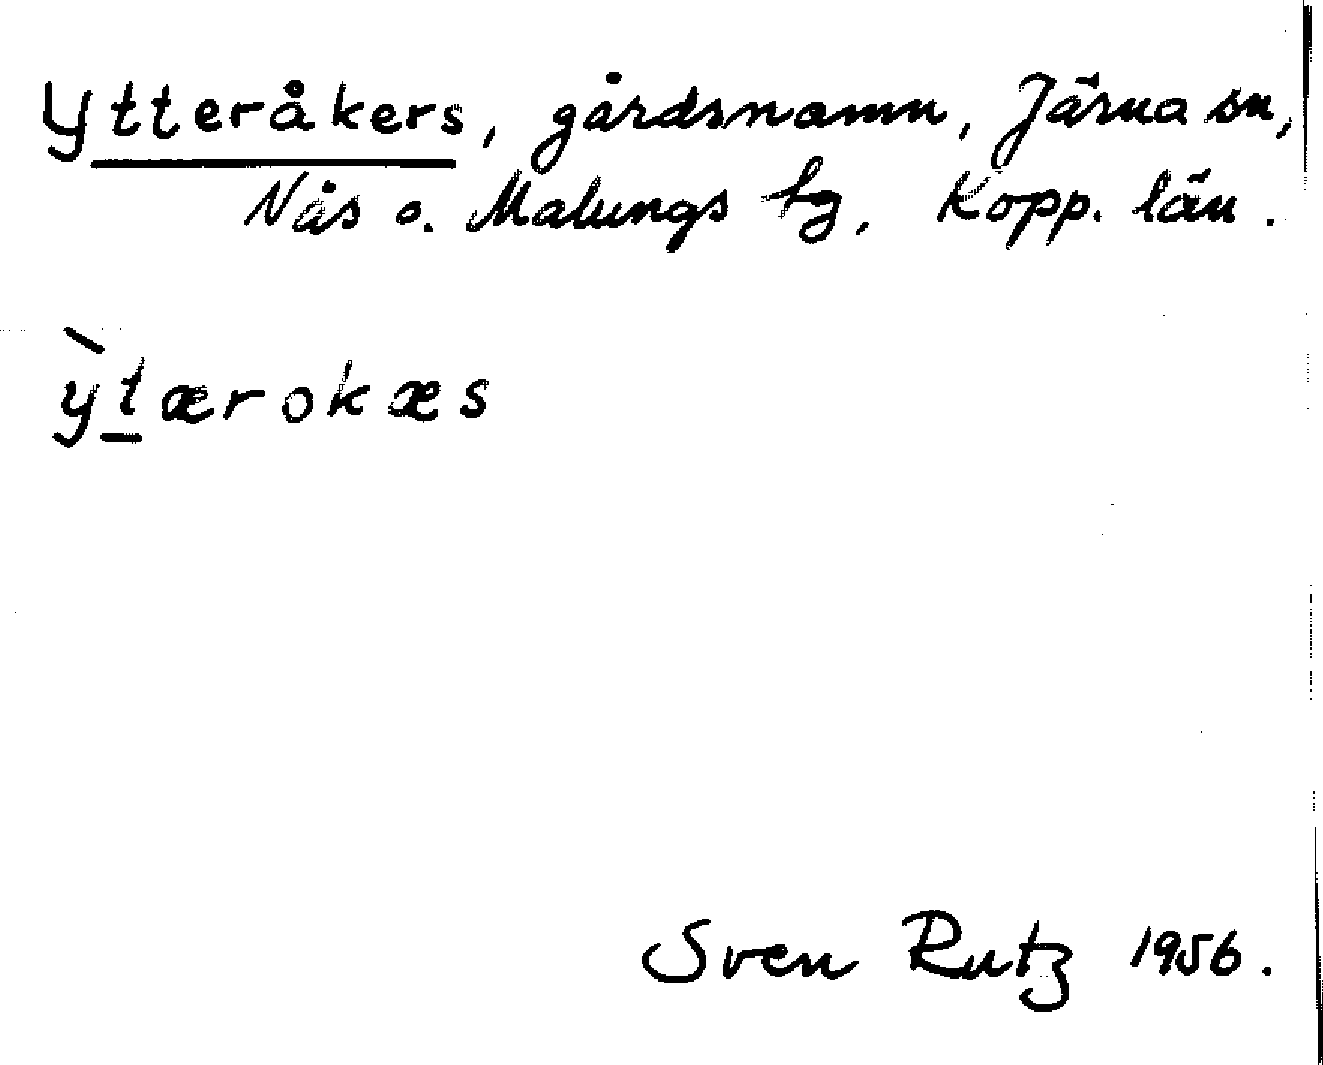 Ytteråkers, gårdsnamn, Järna sn,
Nås o. Malungs tg, Kopp. län.
ỳtærokæs
Sven Rutz 1956.